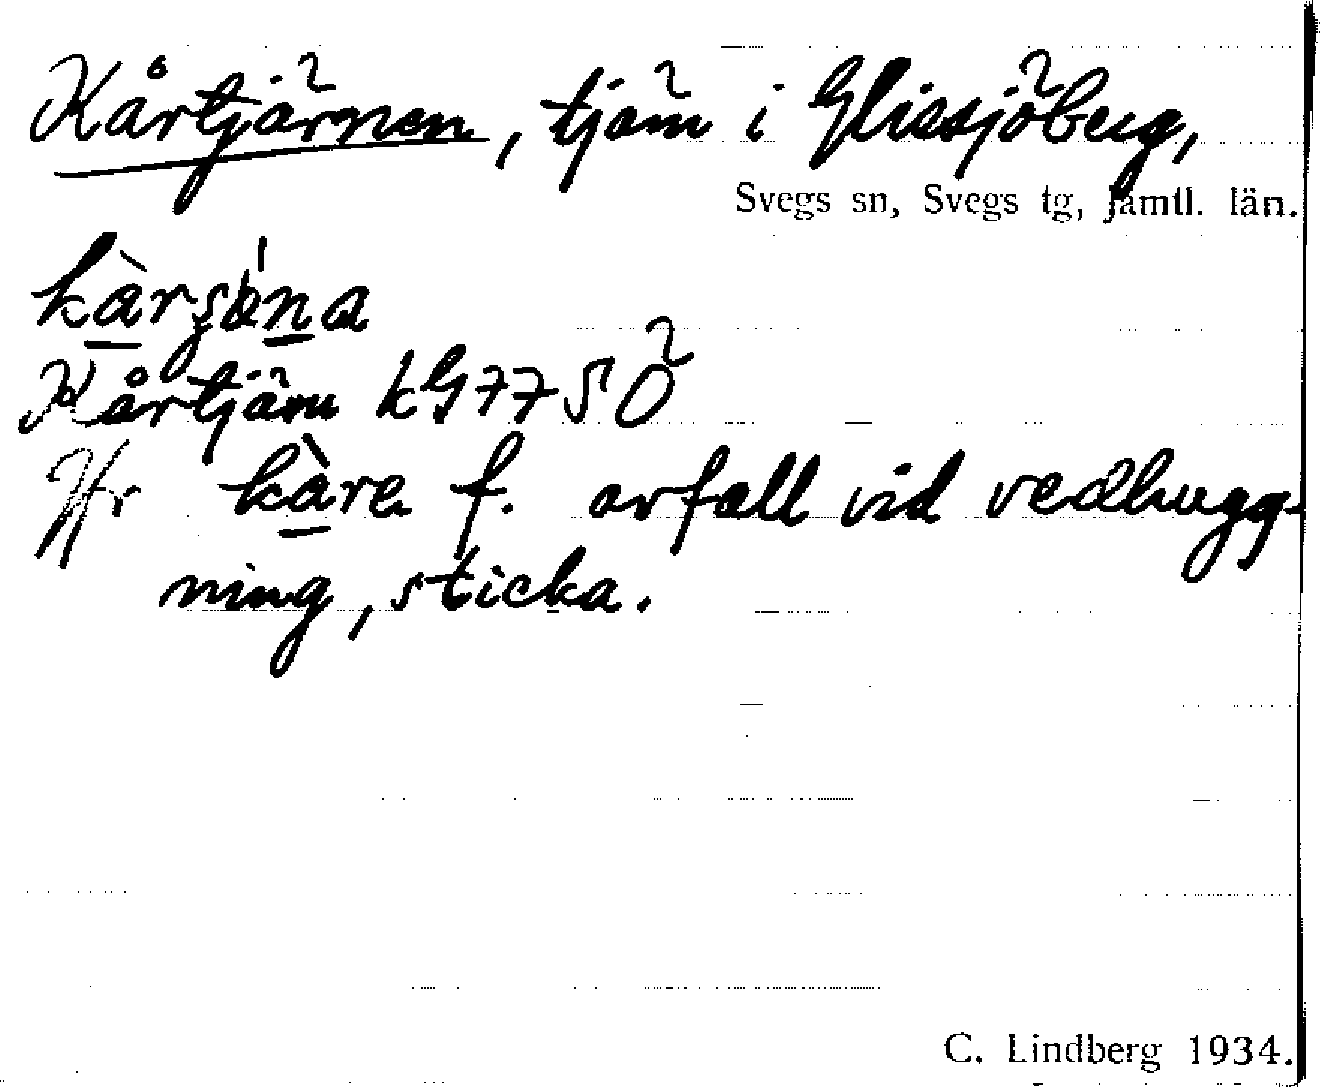 Kårtjärnen, tjärn i Glissjöberg,
Svegs sn, Svegs tg, Jämtl. län.
Kårtjärn kG7750
Jfr kåre f. avfall vid vedhugg-
ning, sticka.
C. Lindberg 1934.